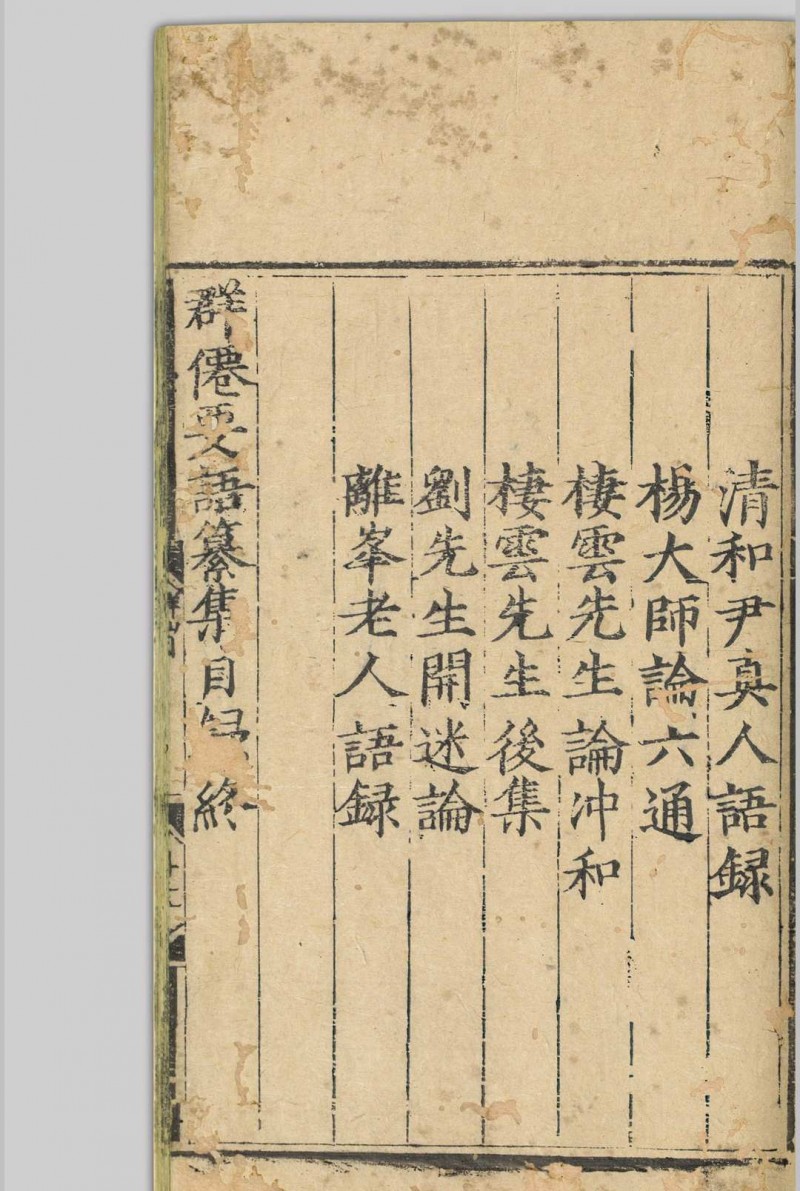 清和尹真人語録
楊大師論六通
棲雲先生論冲和
棲雲先生後集
劉先生開迷論
離峯老人語録
群僊要語纂集目録終